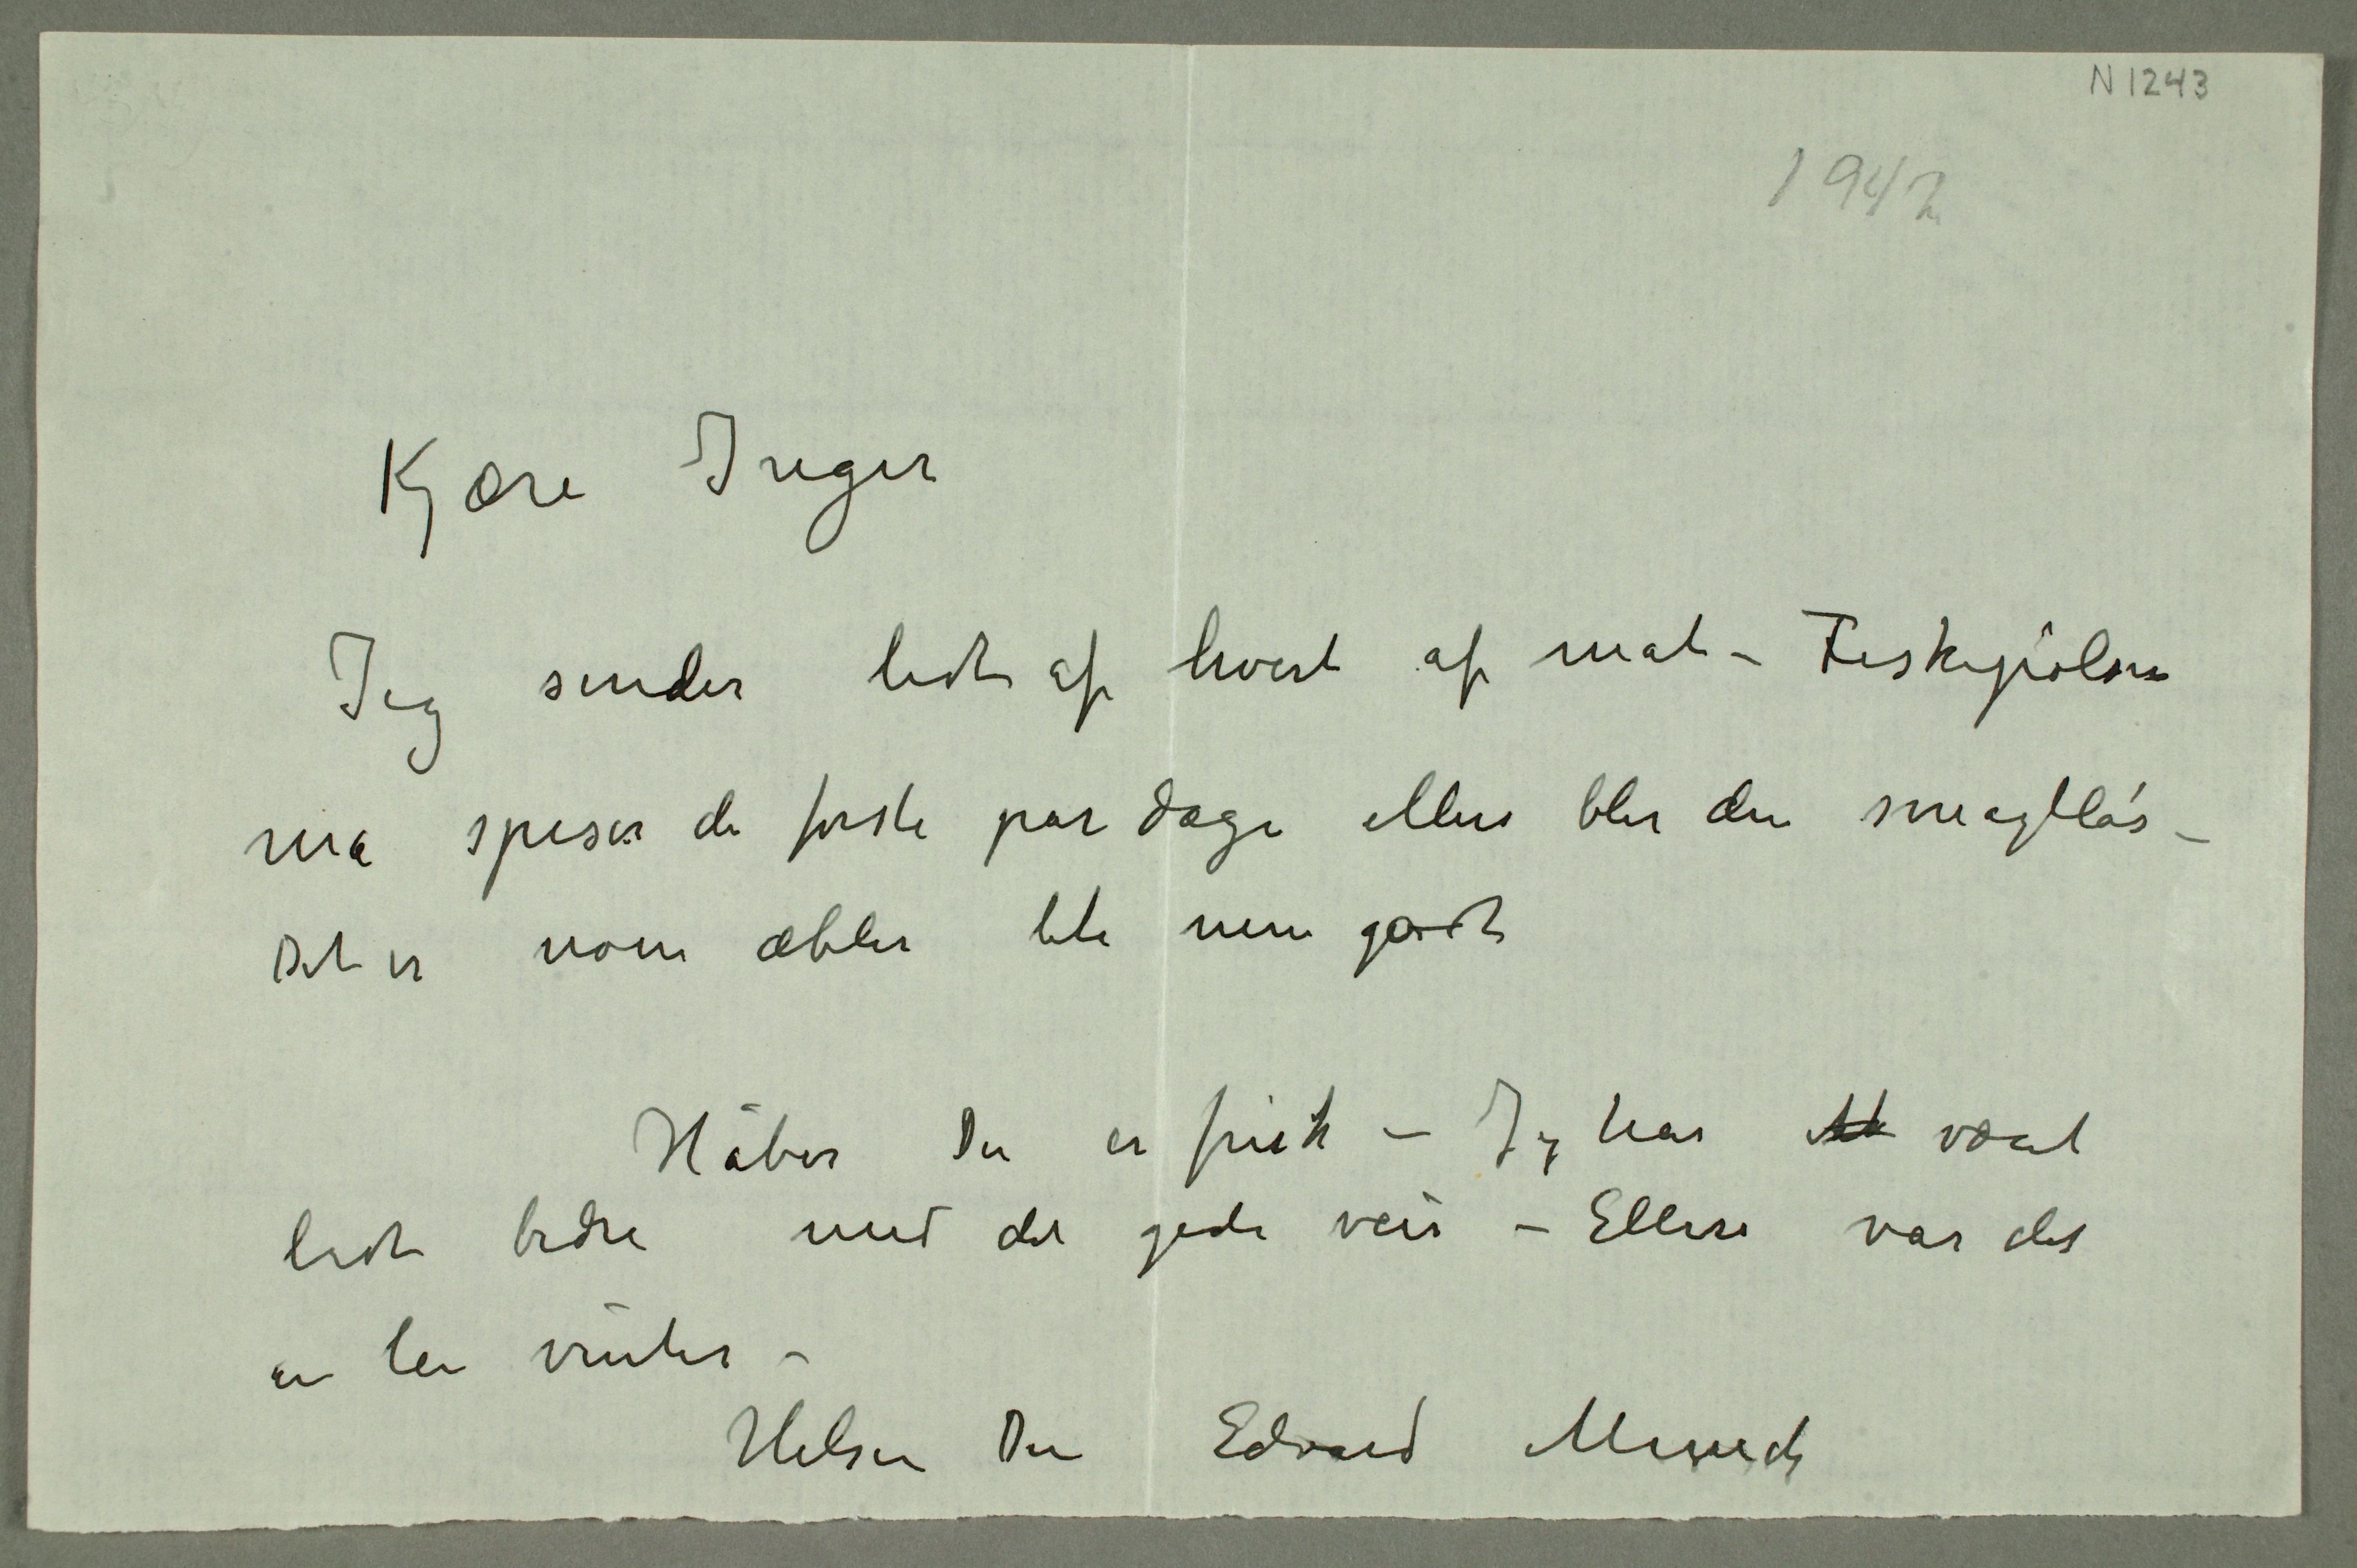 N 1243
1942
Kjære Inger
Jeg sender lidt af hvert af mat – Fiskepølsen
må spises de første par dage ellers blir den smagløs –
Det er noen æbler lite men godt
Håber Du er frisk – Jeg har været
lidt bedre med det gode veir – Ellers var det
en lei vinter –
Hilsen Din Edvard Munch